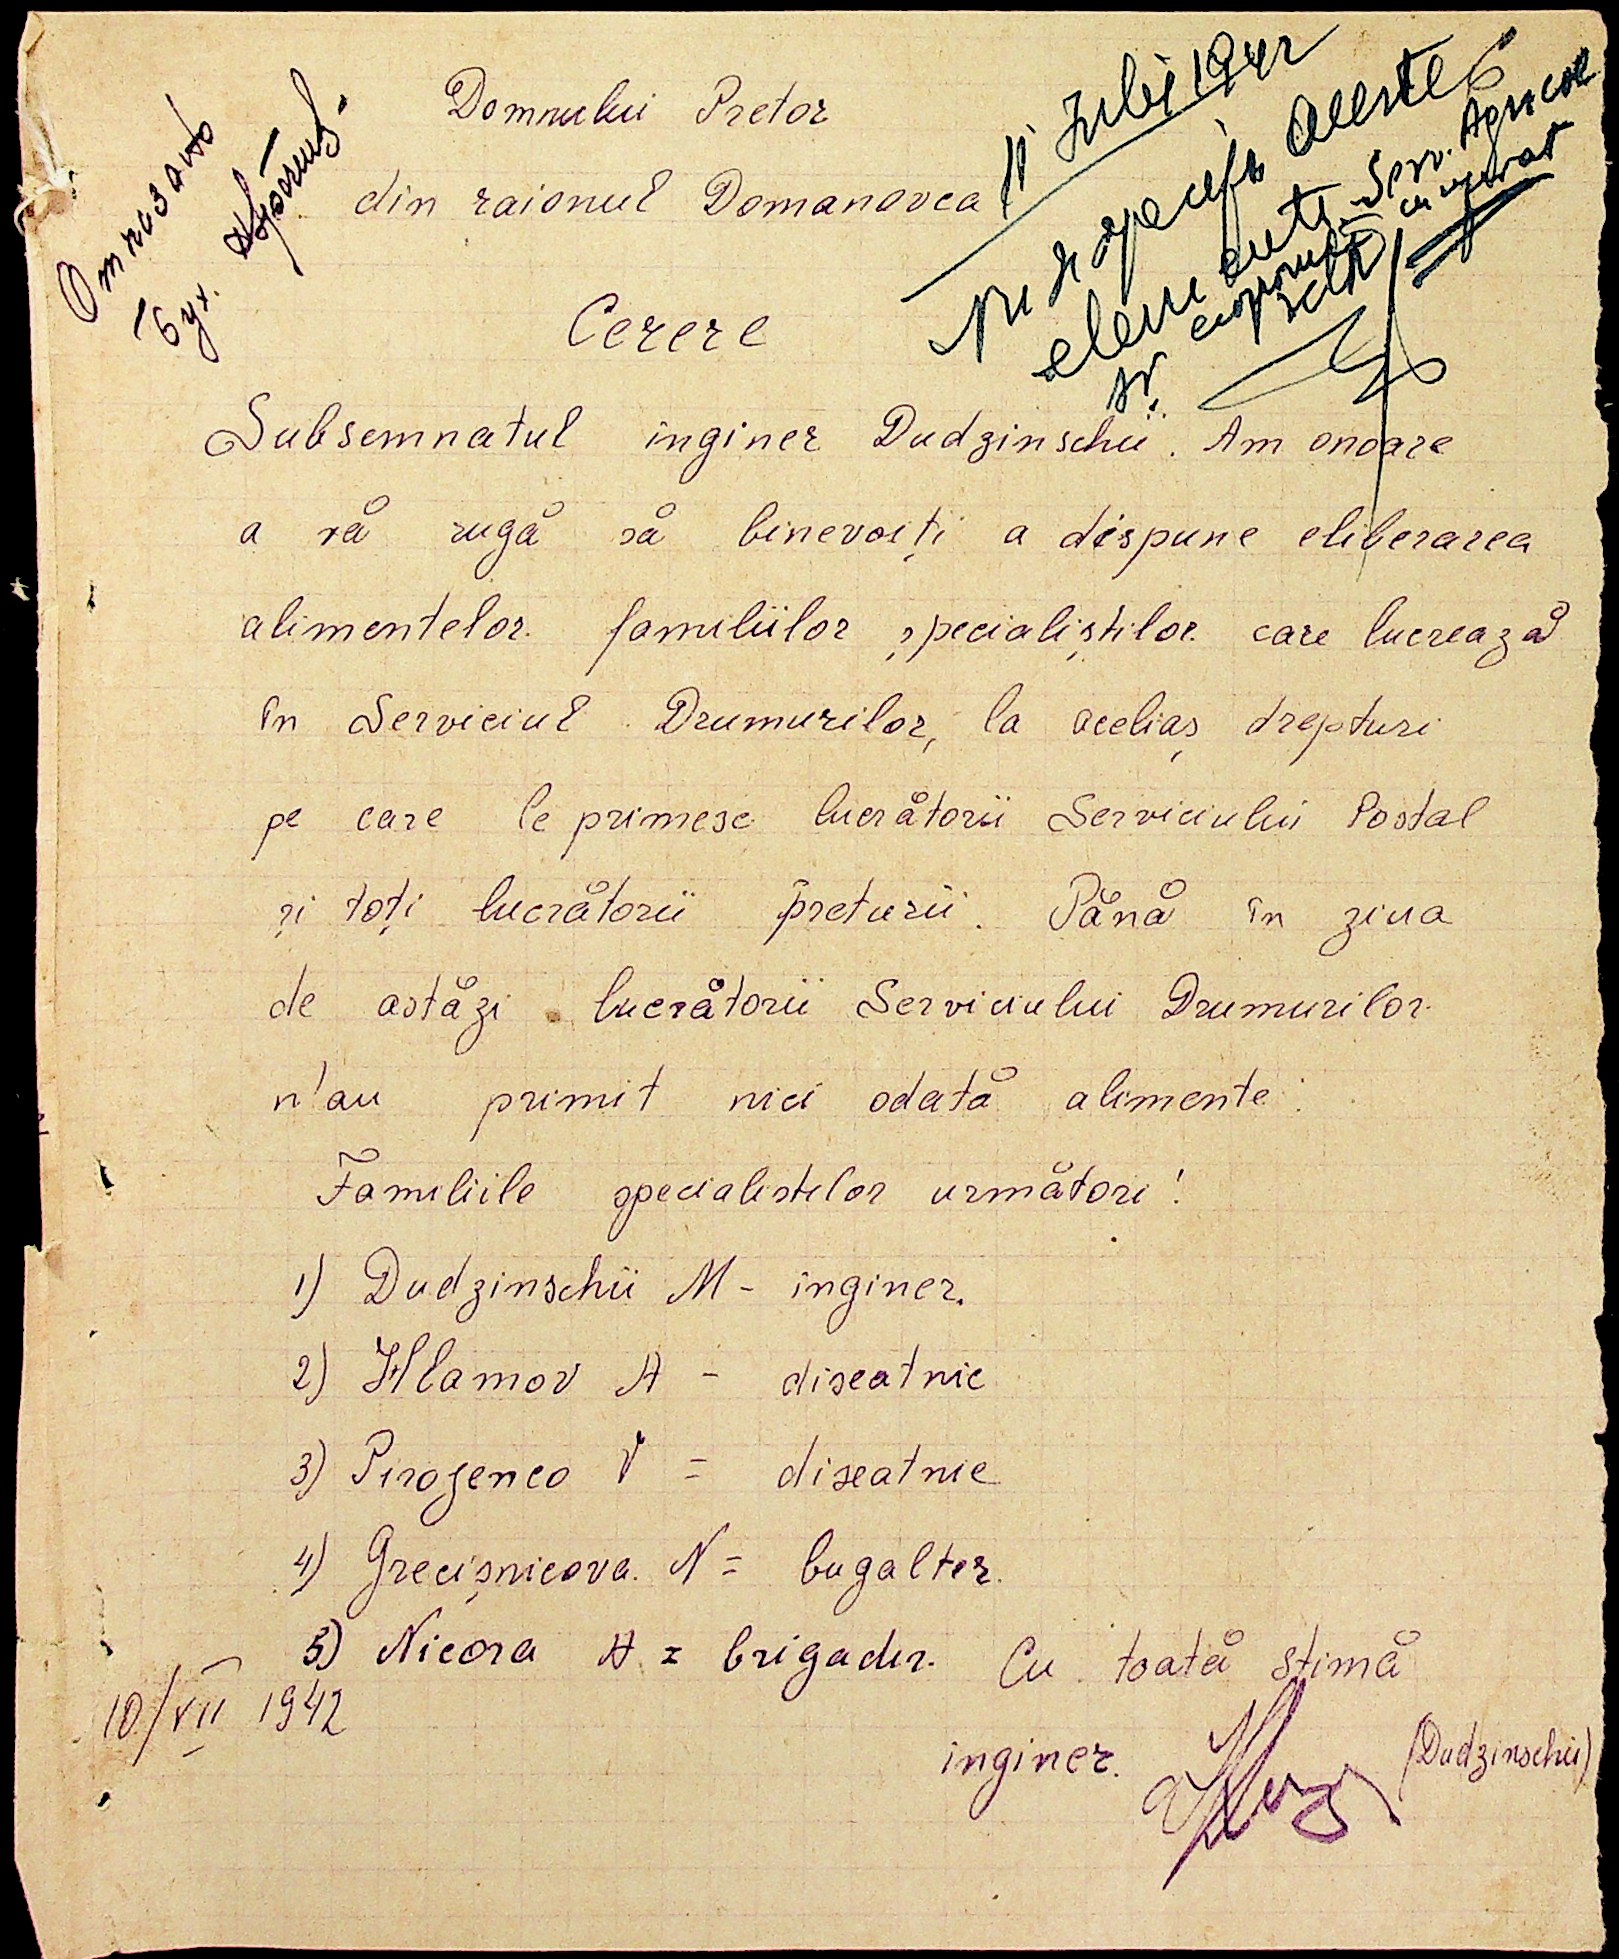 Domnului Pretor
din raionul Domanovca
Отказать
Бух.
11 Iulie 1942
Nu se specifică aceste
elemente. Serv. Agricol
Cerere
Subsemnatul inginer Dudzinschii. Am onoare
a vă rugă să binevoiți a dispune eliberarea
alimentelor familiilor șpecialiștilor care lucrează
în Serviciul Drumurilor, la aceliaș drepturi
pe care le primesc lucrătorii Serviciului Postal
și toți lucrătorii preturii. Până în ziua
de astăzi lucrătorii Serviciului Drumurilor
n'au primit nici odată alimente.
Familiile specialistilor următori!
1) Dudzinschii M - inginer.
2) Hlamov A - diseatnic
3) Pirogenco V = diseatnic
4) Grecișnicova N = bugalter.
5) Nicora A = brigadir. Cu toată stimă
10/VII 1942
inginer. (Dudzinschii)